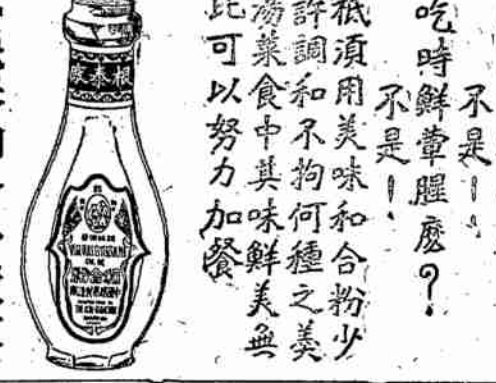 不是!!
吃時鮮葷腥麼?
不是!!
祇須用美味和合粉少
許調和不拘何種之羹
湯菜食中其味鮮美無
此可以努力加餐
根泰廠